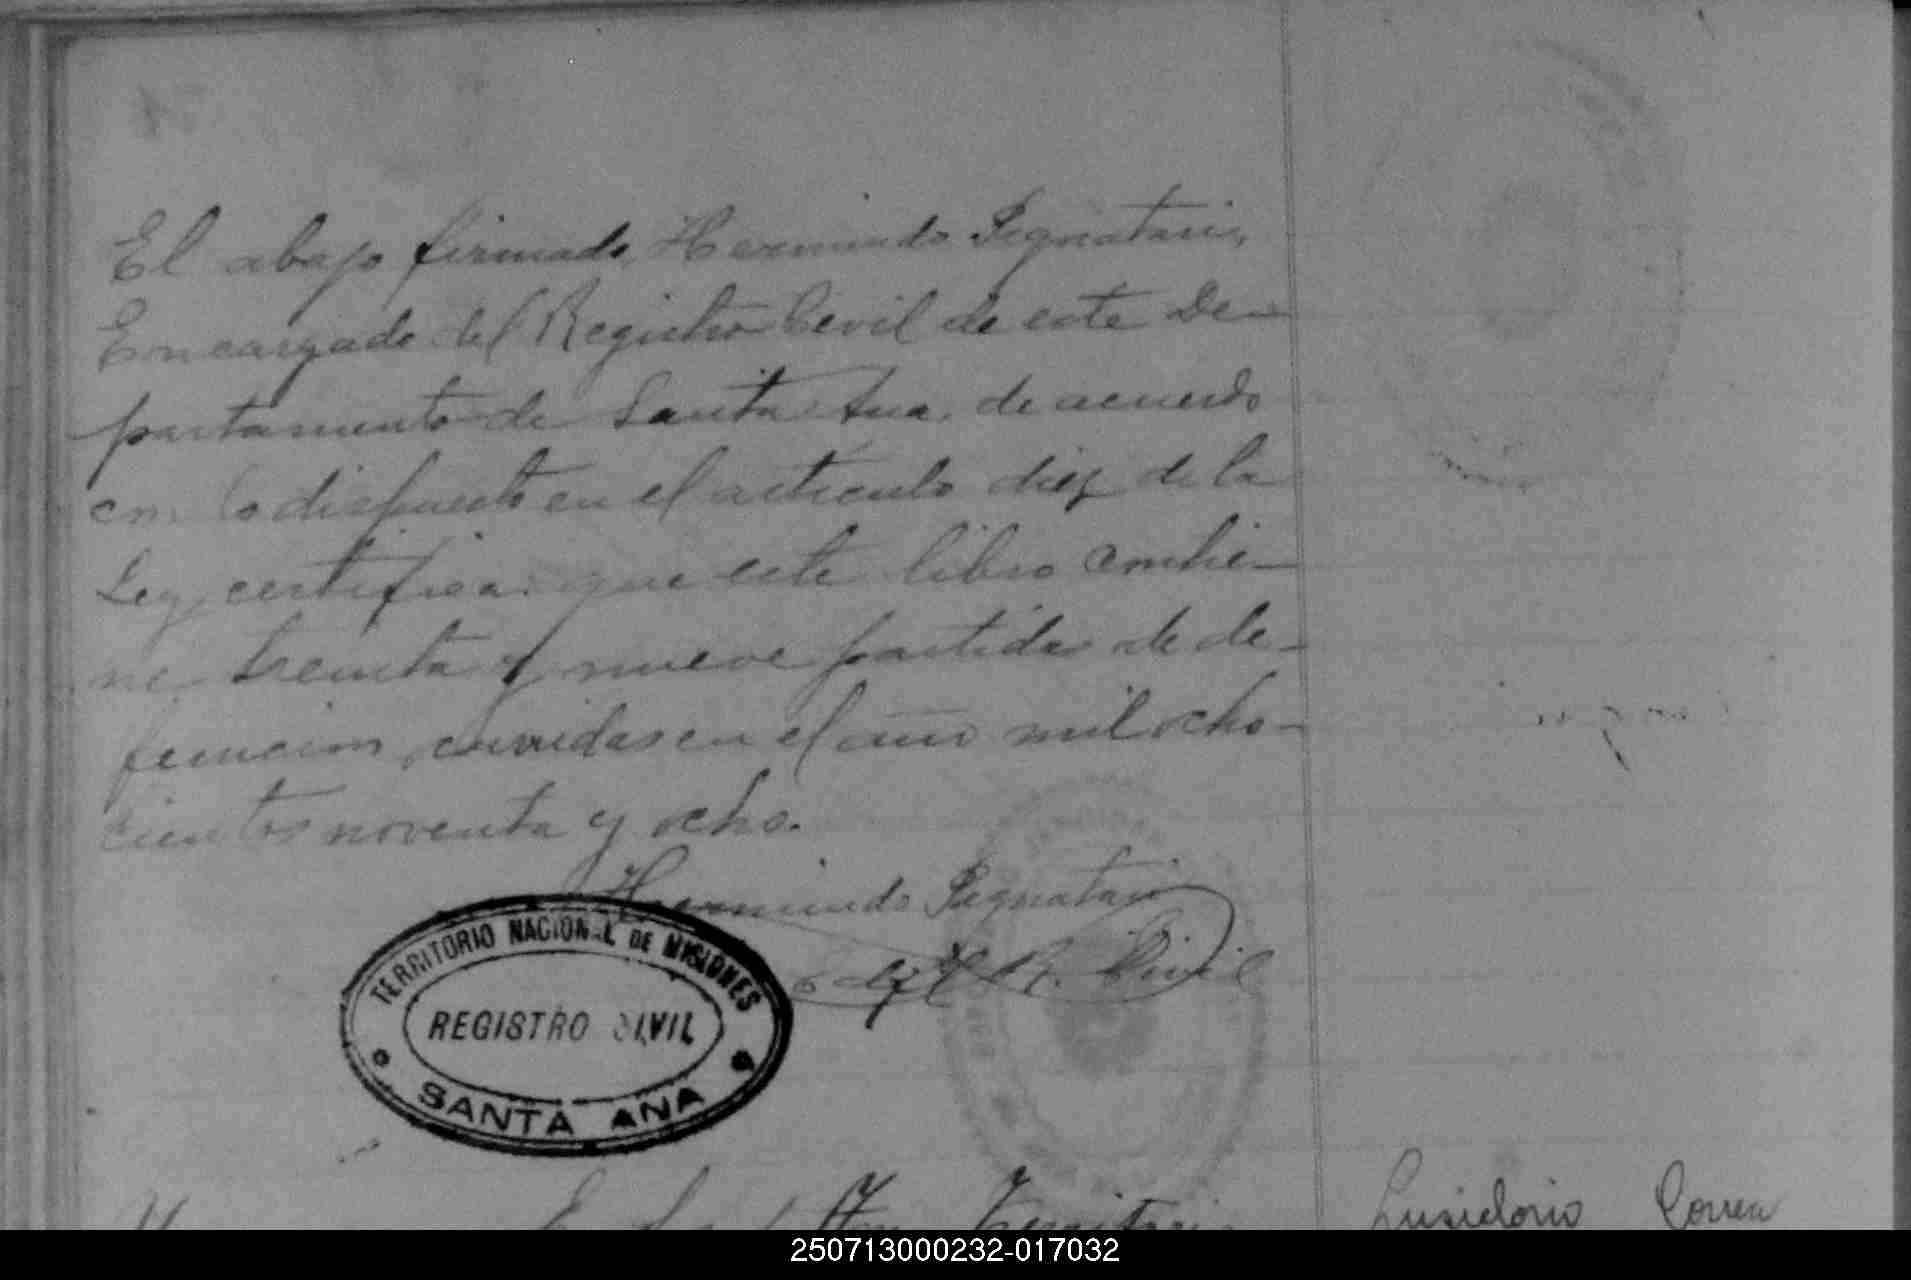 El abajo firmado, Hermindo Pignataris,
Encargado del Registro Cevil de este De-
partamento de Santa Ana, de acuerdo
con lo dispuesto en el articulo diez de la
Ley, certifica: que este libro contie-
ne treinta y nueve partidas de de-
funcion, curridas en el año mil ocho-
cientos noventa y ocho.
Hermindo Pignatari
E del R. Civil
TERRITORIO NACIONAL DE MISIONES
REGISTRO CIVIL
SANTA ANA
Territorio
Lusidorio Correa
250713000232-017032